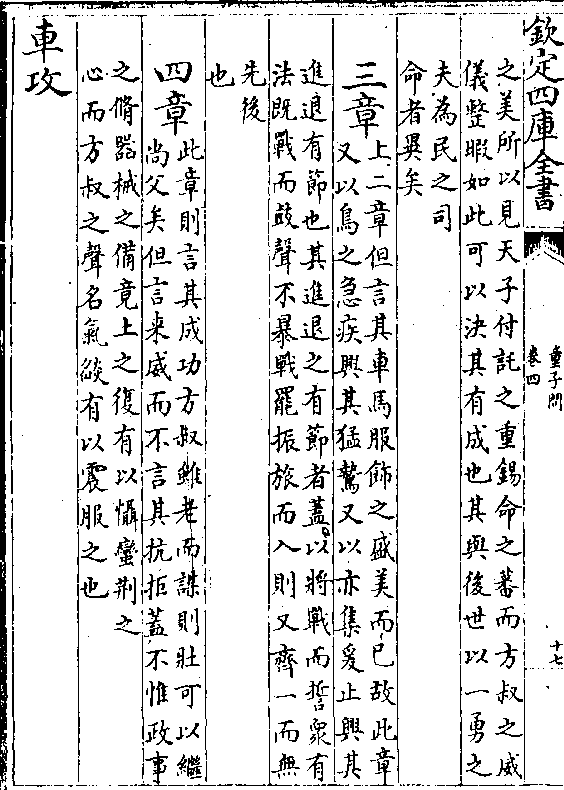 欽定四庫全書
童子問
卷四
十七
之美所以見天子付託之重錫命之蕃而方叔之威
儀整暇如此可以決其有成也其與後世以一勇之
夫為民之司
命者異矣
三章
上二章但言其車馬服飾之盛美而已故此章
又以鳥之急疾興其猛鷙又以亦集爰止興其
進退有節也其進退之有節者蓋以將戰而誓衆有
法既戰而鼓聲不暴戰罷振旅而入則又齊一而無
先後
也
四章
此章則言其成功方叔雖老而謀則壯可以繼
尚父矣但言来威而不言其抗拒蓋不惟政事
之脩器械之備竟上之復有以懾蠻荆之
心而方叔之聲名氣燄有以震服之也
車攻